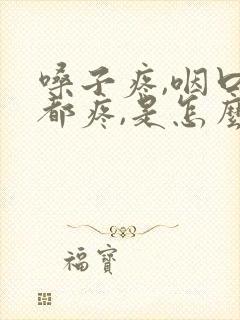 嗓子疼,咽口
都疼,是怎麼
福寶